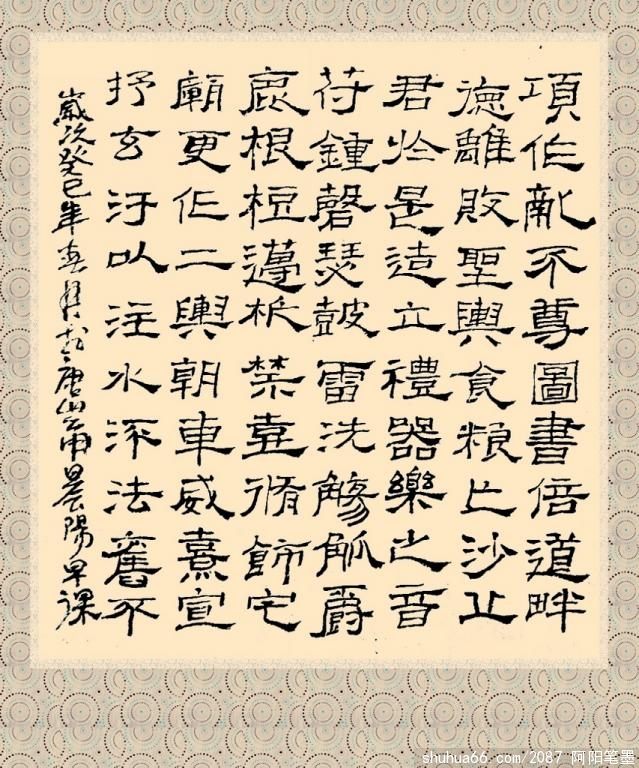 項作亂不尊圖書倍道畔
德離敗聖輿食粮亡沙丘
君於是造立禮器樂之音
苻鍾磬瑟鼓雷洗觴觚爵
鹿柤梪籩柉禁壺脩飾宅
廟更作二輿朝車威熹宣
抒玄汙以注水流法舊不
歲次癸巳年春月於唐山晨陽早課
shuhua66.com/2087 阿阳笔墨